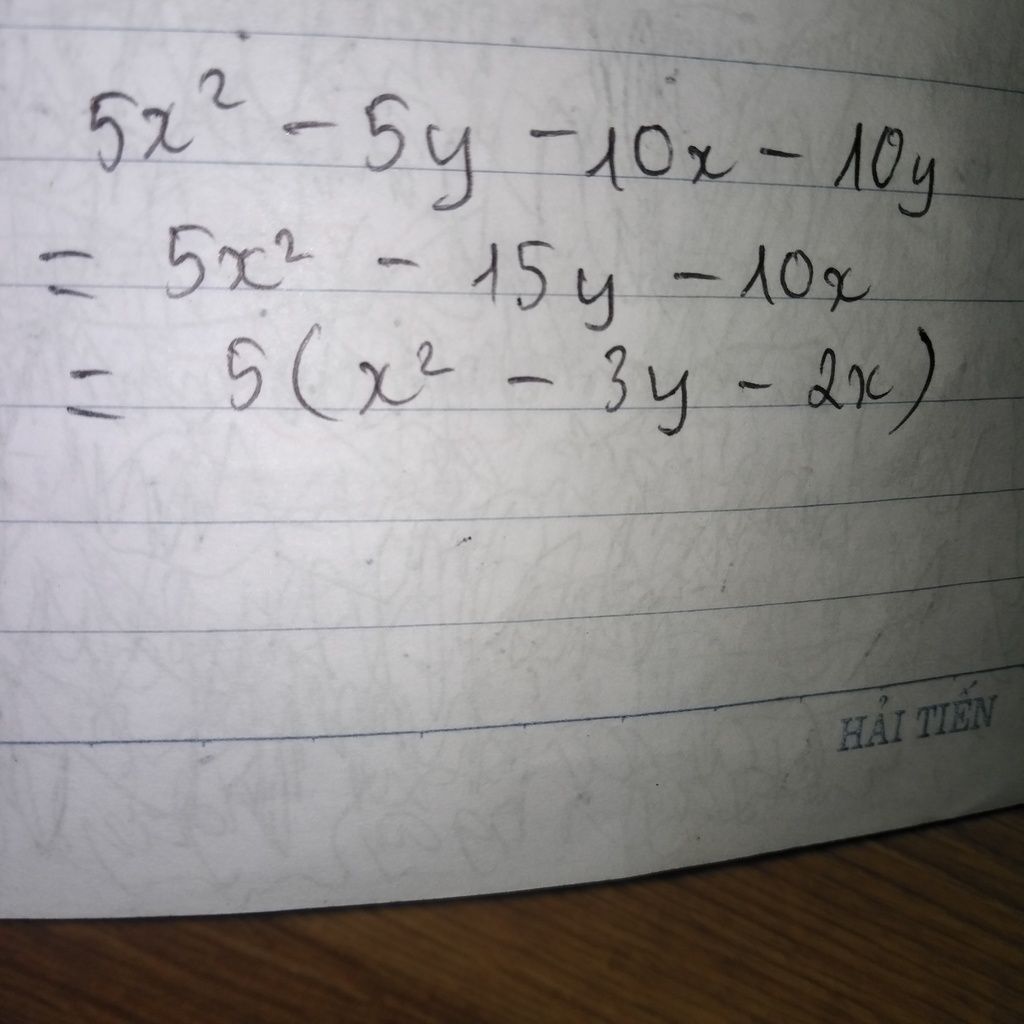 5x² - 5y - 10x - 10y
= 5x² - 15y - 10x
= 5(x² - 3y - 2x)
HẢI TIẾN